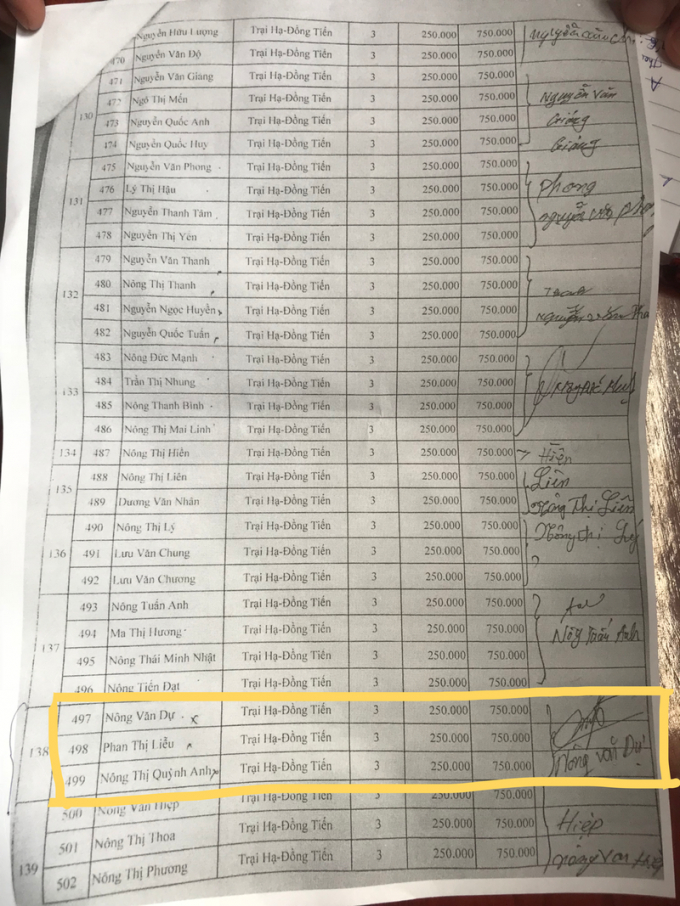 Nguyễn Hữu Lượng Trại Hạ-Đồng Tiến 3 250.000 750.000
470 Nguyễn Văn Độ Trại Hạ-Đồng Tiến 3 250.000 750.000
471 Nguyễn Văn Giang Trại Hạ-Đồng Tiến 3 250.000 750.000
130 472 Ngô Thị Mến Trại Hạ-Đồng Tiến 3 250.000 750.000 Nguyễn Văn
473 Nguyễn Quốc Anh Trại Hạ-Đồng Tiến 3 250.000 750.000 Giáng
474 Nguyễn Quốc Huy Trại Hạ-Đồng Tiến 3 250.000 750.000 Giáng
475 Nguyễn Văn Phong Trại Hạ-Đồng Tiến 3 250.000 750.000
131 476 Lý Thị Hậu Trại Hạ-Đồng Tiến 3 250.000 750.000 Phong
477 Nguyễn Thanh Tâm Trại Hạ-Đồng Tiến 3 250.000 750.000 Nguyễn Văn
478 Nguyễn Thị Yên Trại Hạ-Đồng Tiến 3 250.000 750.000
479 Nguyễn Văn Thanh Trại Hạ-Đồng Tiến 3 250.000 750.000
132 480 Nông Thị Thanh Trại Hạ-Đồng Tiến 3 250.000 750.000
481 Nguyễn Ngọc Huyền Trại Hạ-Đồng Tiến 3 250.000 750.000 Nguyễn
482 Nguyễn Quốc Tuấn Trại Hạ-Đồng Tiến 3 250.000 750.000
483 Nông Đức Mạnh Trại Hạ-Đồng Tiến 3 250.000 750.000
133 484 Trần Thị Nhung Trại Hạ-Đồng Tiến 3 250.000 750.000
485 Nông Thanh Bình Trại Hạ-Đồng Tiến 3 250.000 750.000
486 Nông Thị Mai Linh Trại Hạ-Đồng Tiến 3 250.000 750.000
134 487 Nông Thị Hiên Trại Hạ-Đồng Tiến 3 250.000 750.000 Hiên
135 488 Nông Thị Liên Trại Hạ-Đồng Tiến 3 250.000 750.000 Liên
489 Dương Văn Nhân Trại Hạ-Đồng Tiến 3 250.000 750.000 Nông Thị Liên
490 Nông Thị Lý Trại Hạ-Đồng Tiến 3 250.000 750.000 Nông thị Lý
136 491 Lưu Văn Chung Trại Hạ-Đồng Tiến 3 250.000 750.000
492 Lưu Văn Chương Trại Hạ-Đồng Tiến 3 250.000 750.000
493 Nông Tuấn Anh Trại Hạ-Đồng Tiến 3 250.000 750.000
137 494 Ma Thị Hương Trại Hạ-Đồng Tiến 3 250.000 750.000 Nông Tuấn Anh
495 Nông Thái Minh Nhật Trại Hạ-Đồng Tiến 3 250.000 750.000
496 Nông Tiến Đạt Trại Hạ-Đồng Tiến 3 250.000 750.000
497 Nông Văn Dự Trại Hạ-Đồng Tiến 3 250.000 750.000
138 498 Phan Thị Liễu Trại Hạ-Đồng Tiến 3 250.000 750.000 Nông Văn Dự
499 Nông Thị Quỳnh Anh Trại Hạ-Đồng Tiến 3 250.000 750.000
500 Nông Văn Hiệp Trại Hạ-Đồng Tiến 3 250.000 750.000
139 501 Nông Thị Thoa Trại Hạ-Đồng Tiến 3 250.000 750.000 Hiệp
502 Nông Thị Phương Trại Hạ-Đồng Tiến 3 250.000 750.000 Nông Văn Hiệp